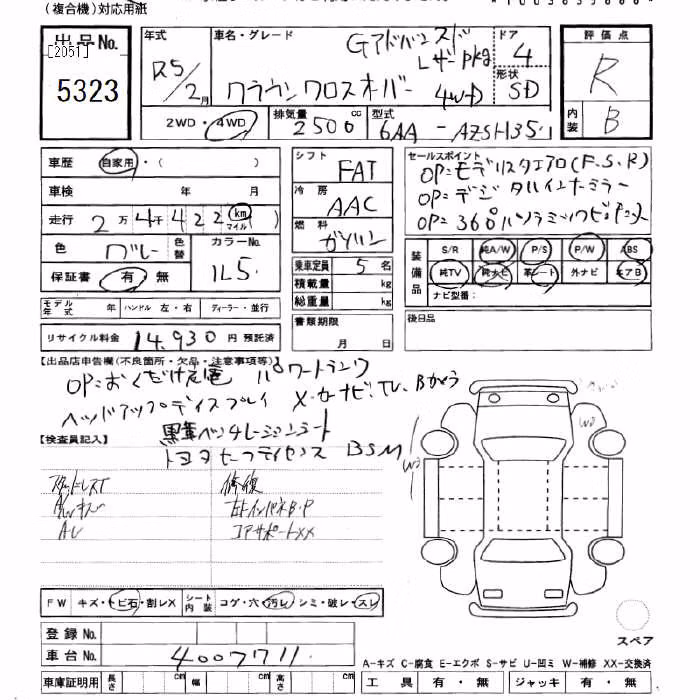 (複合機)対応用紙
出品No.
[2051]
5323
年式
R5/2月
車名・グレード
Gアドバンスド
レザーpkg
クラウンクロスオーバー
4WD
ドア
4
形状
SD
評価点
R
内装
B
2WD・4WD
排気量
2500cc
型式
6AA-AZSH35
車歴 自家用・( )
車検 年 月
走行 2万4千422 km マイル )
色 グレー 色替 カラーNo.
1L5
保証書 有・無
シフト FAT
冷房 AAC
燃料 ガソリン
乗車定員 5名
積載量 kg
総重量 kg
書類期限
月 日
セールスポイント
OP=モデリスタエアロ(F.S.R)
OP=デジタルインナーミラー
OP=360°パノラミックビュー
装備品
S/R 純A/W P/S P/W ABS
純TV 純ナビ 革シート 外ナビ エアB
ナビ型番:
後日品
モデル年式 年 ハンドル 左・右 ディーラー・並行
リサイクル料金 14,930円 預託済
【出品店申告欄(不良箇所・欠品・注意事項等)】
OP=おくだけ充電 パワートランク
ヘッドアップディスプレイ メーカーナビ.TV.Bカメラ
黒革ベンチレーションシート
トヨタセーフティセンス BSM
【検査員記入】
修復
AWキズ
コアサポートXX
FW キズ・トビ石・割レX シート内装 コゲ・穴・汚レ・シミ・破レ・スレ
登録No.
車台No. 4007711
車庫証明用 長さ cm 幅 cm 高さ cm
W2
W2
スペア
A-キズ C-腐食 E-エクボ S-サビ U-凹ミ W-補修 XX-交換済
工具 有・無 ジャッキ 有・無